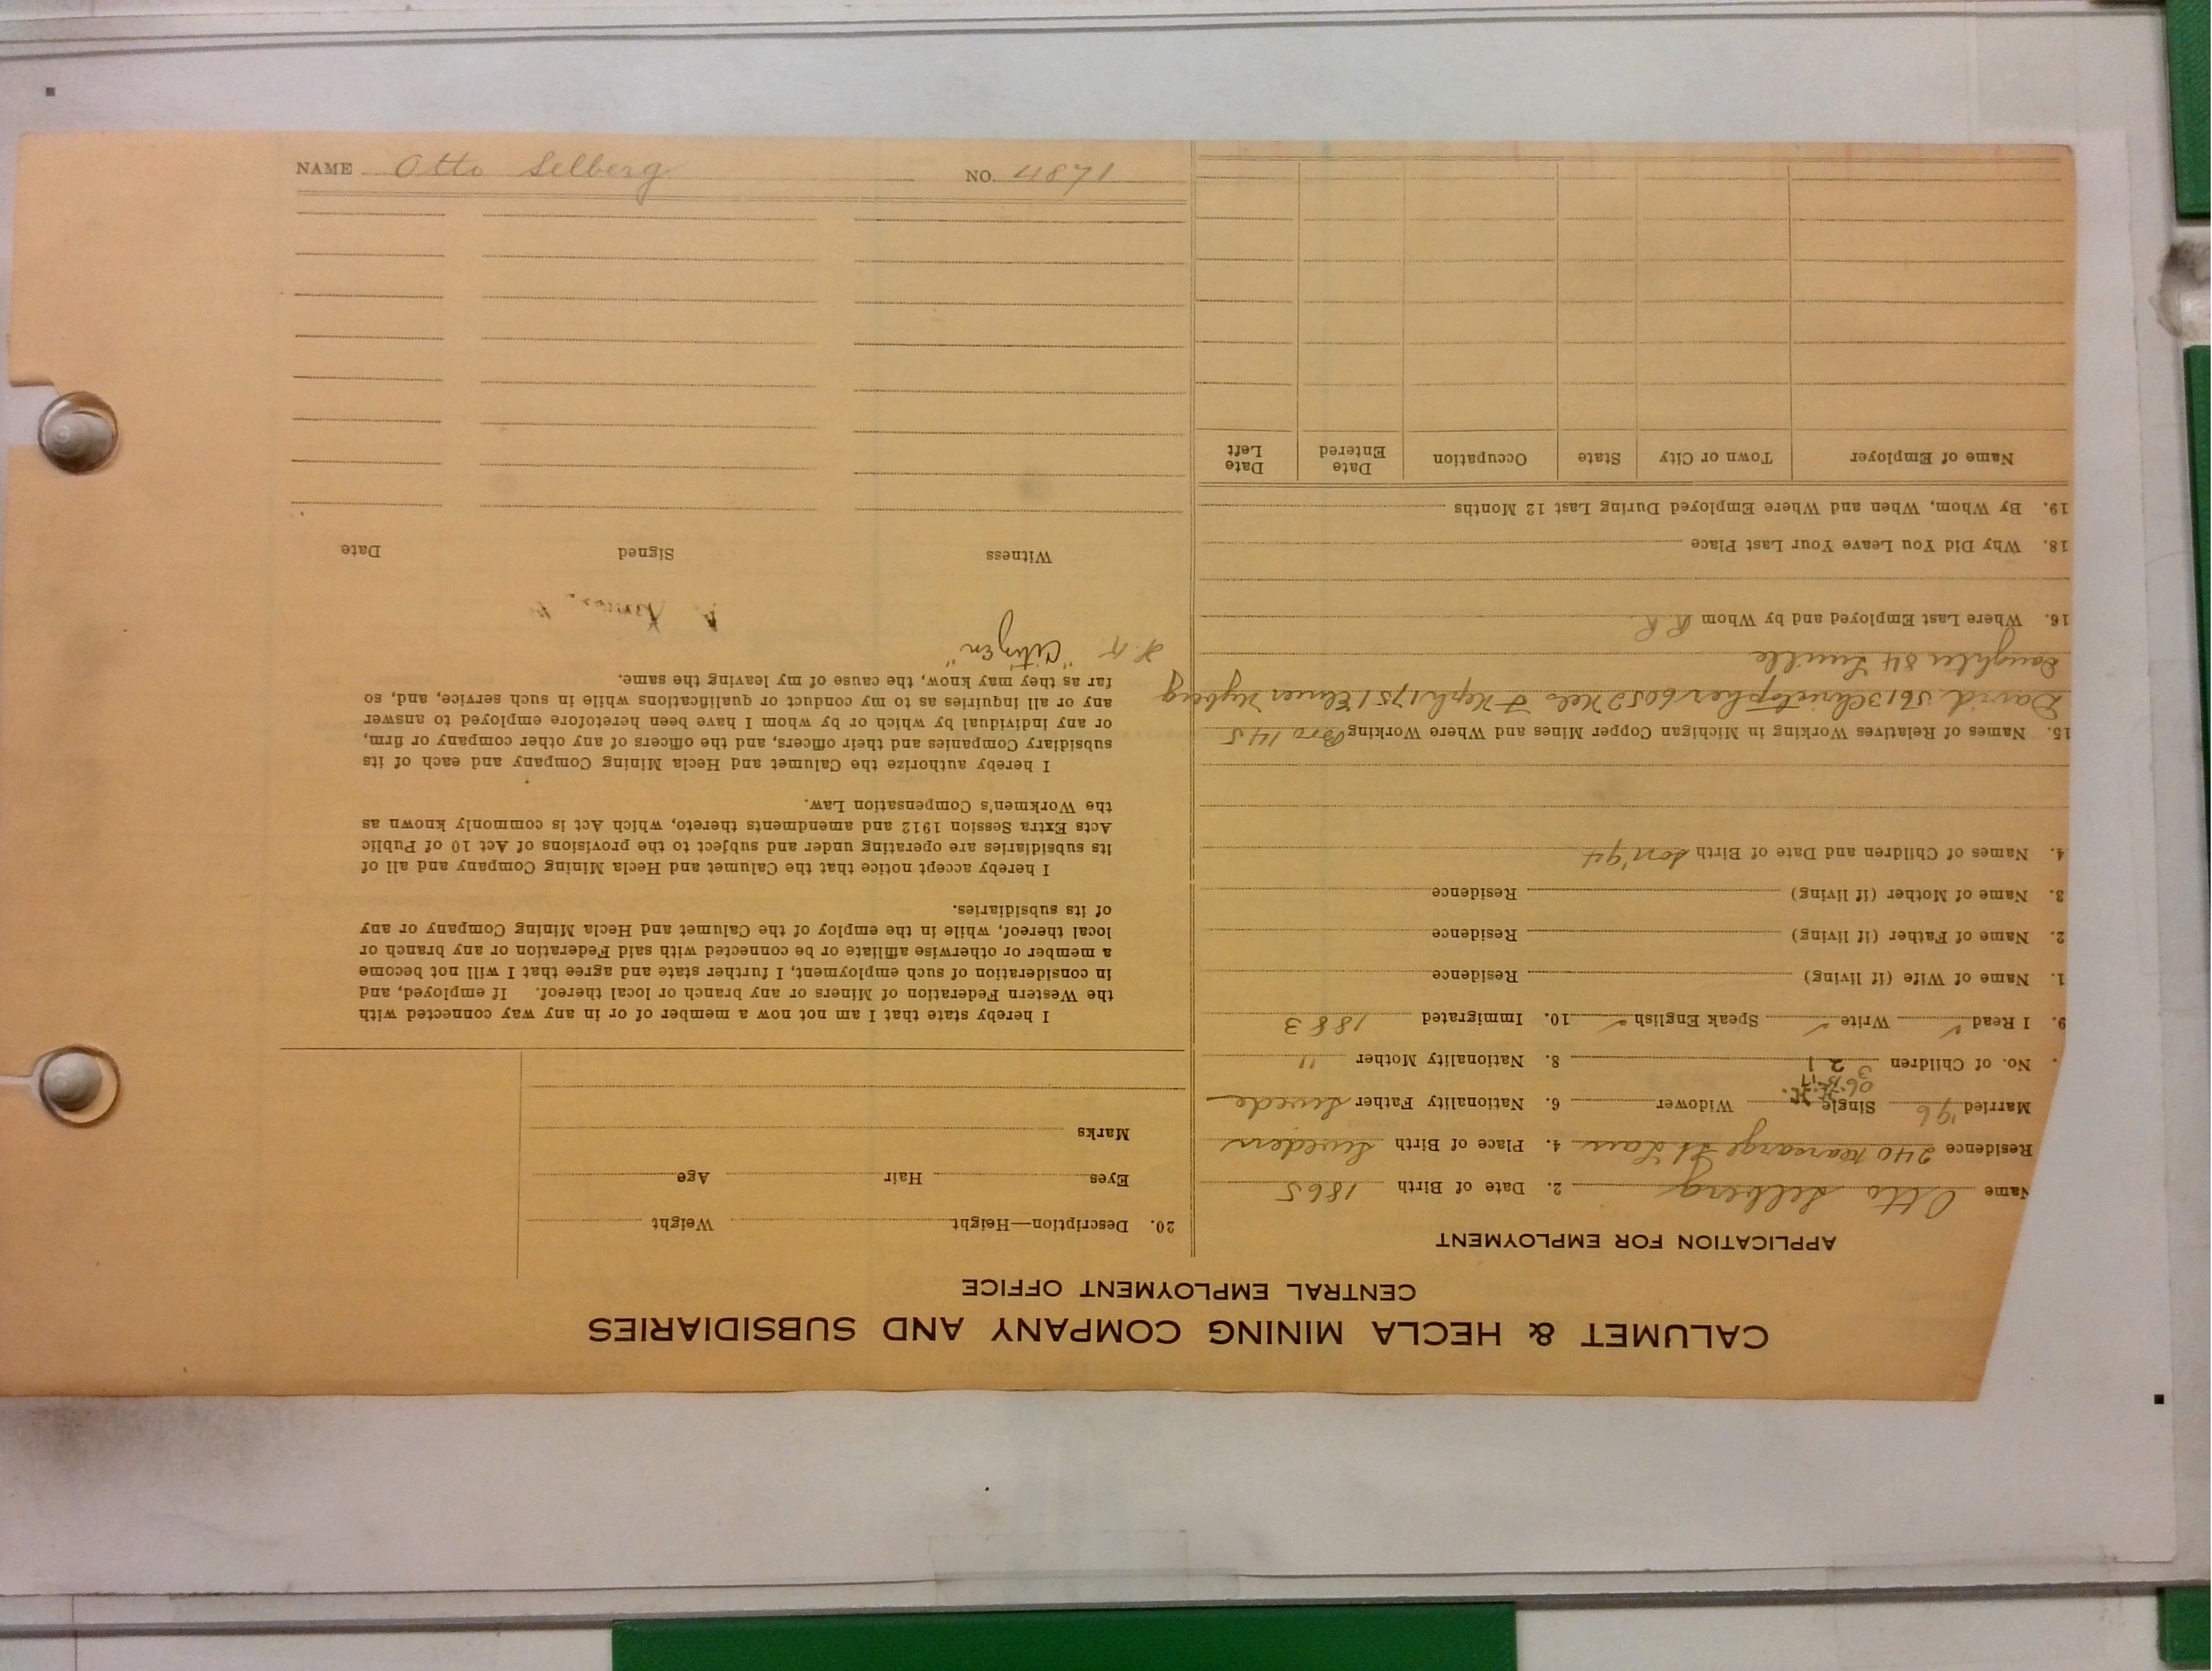 CALUMET & HECLA MINING COMPANY AND SUBSIDIARIES
CENTRAL EMPLOYMENT OFFICE
APPLICATION FOR EMPLOYMENT
Name Otto Selberg 2. Date of Birth 1865
Residence 240 Kearsarge St Laur 4. Place of Birth Sweden
Married '96 Single Widower 6. Nationality Father Swede
No. of Children 3 2 1 8. Nationality Mother "
9. I Read ✓ Write ✓ Speak English ✓ 10. Immigrated 1883
1. Name of Wife (if living) Residence
2. Name of Father (if living) Residence
3. Name of Mother (if living) Residence
4. Names of Children and Date of Birth Son '94
15. Names of Relatives Working in Michigan Copper Mines and Where Working Bro 145
David 5613 Christopher 6052 Nels & Neph 1751 Elmer Nyberg
Daughter 84 Lucille
16. Where Last Employed and by Whom R R
18. Why Did You Leave Your Last Place
19. By Whom, When and Where Employed During Last 12 Months
Name of Employer Town or City State Occupation Date Entered Date Left
20. Description—Height Weight
Eyes Hair Age
Marks
I hereby state that I am not now a member of or in any way connected with
the Western Federation of Miners or any branch or local thereof. If employed, and
in consideration of such employment, I further state and agree that I will not become
a member or otherwise affiliate or be connected with said Federation or any branch or
local thereof, while in the employ of the Calumet and Hecla Mining Company or any
of its subsidiaries.
I hereby accept notice that the Calumet and Hecla Mining Company and all of
its subsidiaries are operating under and subject to the provisions of Act 10 of Public
Acts Extra Session 1912 and amendments thereto, which Act is commonly known as
the Workmen's Compensation Law.
I hereby authorize the Calumet and Hecla Mining Company and each of its
subsidiary Companies and their officers, and the officers of any other company or firm,
or any individual by which or by whom I have been heretofore employed to answer
any or all inquiries as to my conduct or qualifications while in such service, and, so
far as they may know, the cause of my leaving the same.
"Citizen"
Witness Signed Date
NAME Otto Selberg NO. 4871